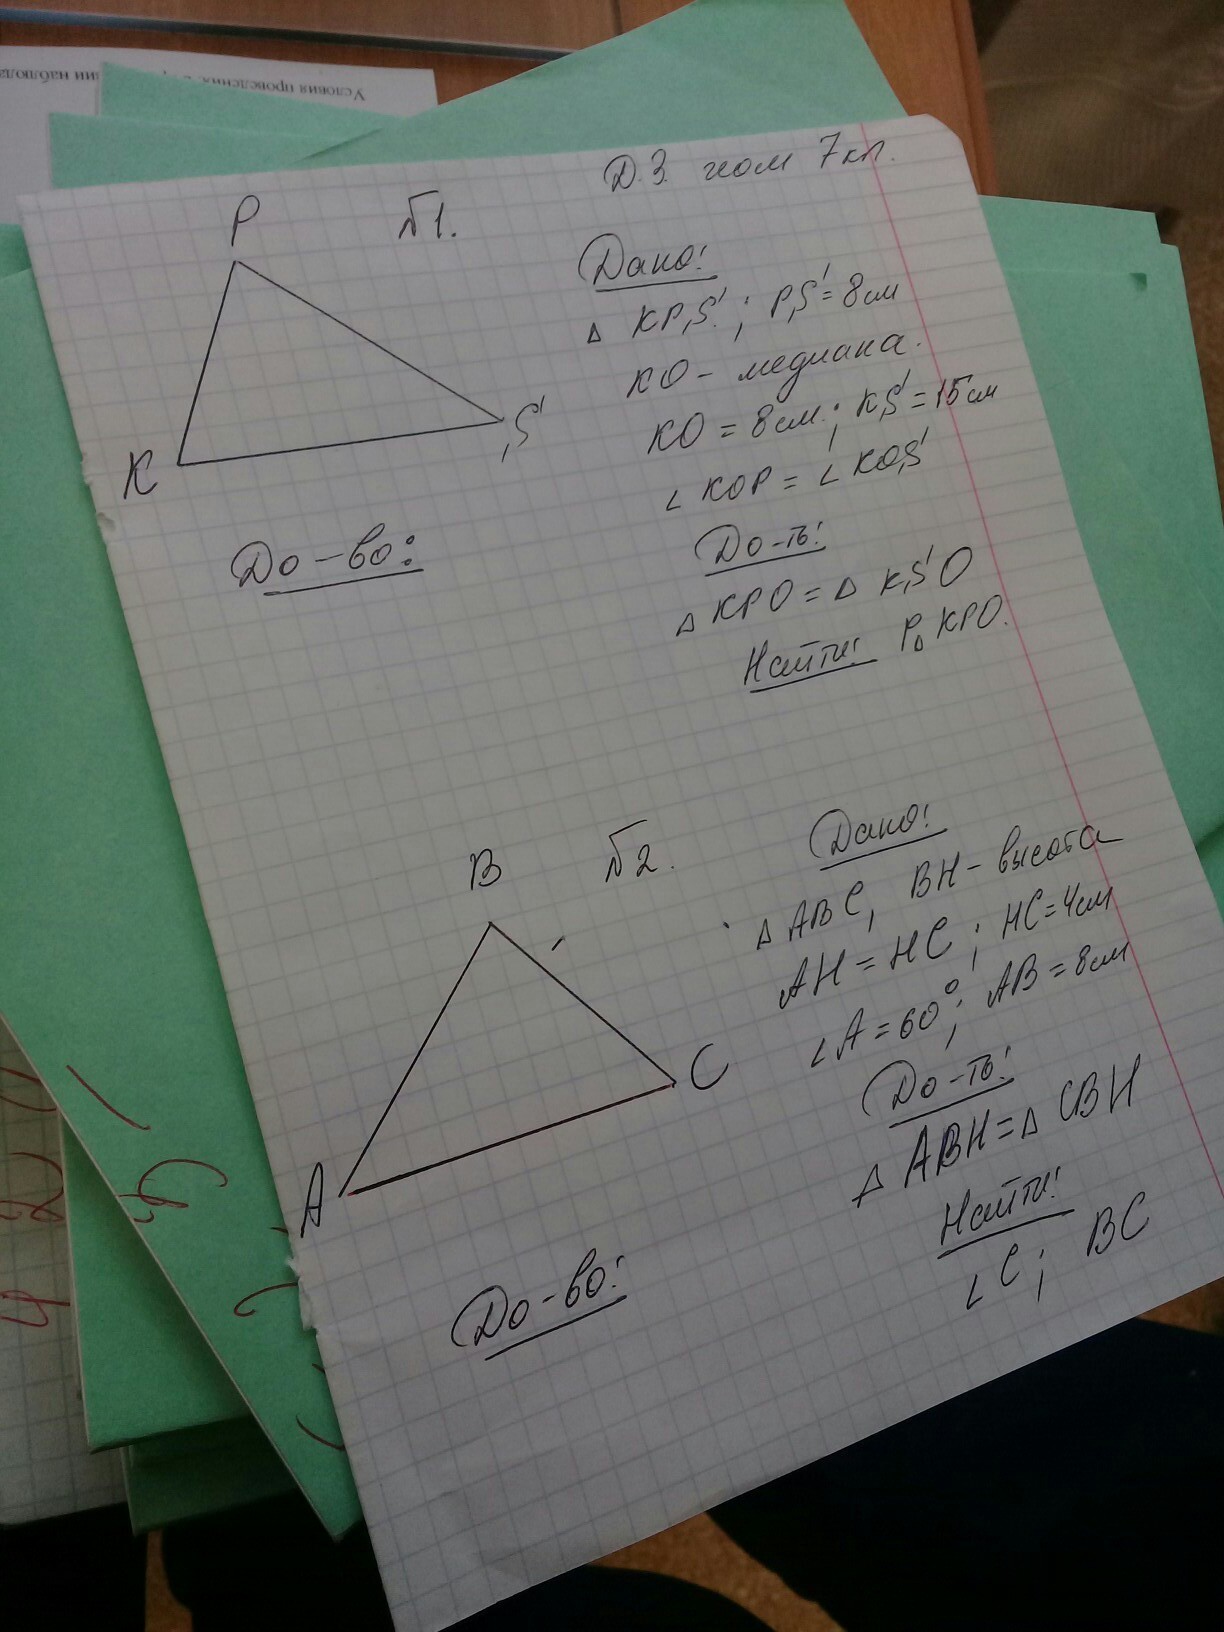 Условия проведения
ии наблюда
Д.З. геом 7кл.
№1.
P
K
S
Дано:
△ KPS ; PS = 8 см
KO - медиана.
KO = 8 см ; KS = 15 см
∠ KOP = ∠ KOS
До-ть:
△ KPO = △ KSO
Найти: P△ KPO.
До-во:
№2.
B
A
C
Дано:
△ ABC, BH - высота
AH = HC ; HC = 4 см
∠ A = 60° ; AB = 8 см
До-ть:
△ ABH = △ CBH
Найти:
∠ C ; BC
До-во: